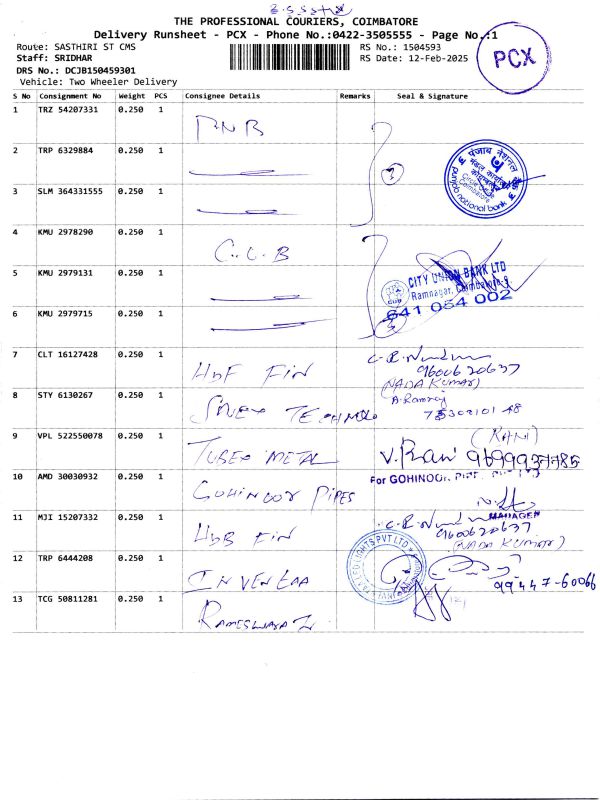 THE PROFESSIONAL COURIERS, COIMBATORE
Delivery Runsheet - PCX - Phone No.:0422-3505555 - Page No.:1
Route: SASTHIRI ST CMS
RS No.: 1504593
Staff: SRIDHAR
RS Date: 12-Feb-2025
PCX
DRS No.: DCJB150459301
Vehicle: Two Wheeler Delivery
S No Consignment No Weight PCS Consignee Details Remarks Seal & Signature
1 TRZ 54207331 0.250 1 PNB
2 TRP 6329884 0.250 1
पंजाब नैशनल
punjab national bank
Coimbatore
3 SLM 364331555 0.250 1
4 KMU 2978290 0.250 1 C.U.B
5 KMU 2979131 0.250 1
CITY UNION BANK LTD
Ramnagar, Coimbatore-9
641 054 002
6 KMU 2979715 0.250 1
3
7 CLT 16127428 0.250 1 HDF FIN
9600620637
(NADA KUMAR)
8 STY 6130267 0.250 1
A. Ramraj
9 VPL 522550078 0.250 1 TUBEX METAL
(RANI)
V. Rani
10 AMD 30030932 0.250 1 GOHINOOR PIPES
For GOHINOOR
MANAGER
11 MJI 15207332 0.250 1 HDB FIN
9600620637
(NADA KUMAR)
12 TRP 6444208 0.250 1
LIGHTS PVT LTD
99447-60066
13 TCG 50811281 0.250 1